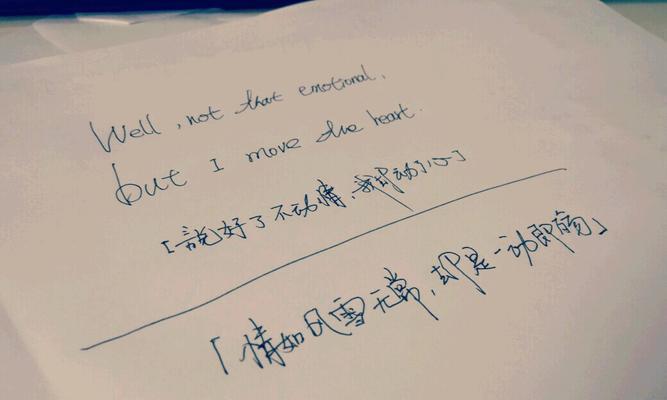 Well, not that emotional,
but I move the heart.
「說好了不动情,我却动了心」
「情如风雪无常,却是一动即殇」